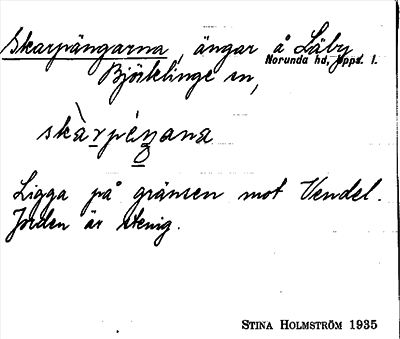 Skarpängarna, ängar å Läby
Norunda hd, Uppl. 1.
Björklinge sn,
skàrpéŋana
Ligga på gränsen mot Vendel.
Jorden är stenig.
STINA HOLMSTRÖM 1935